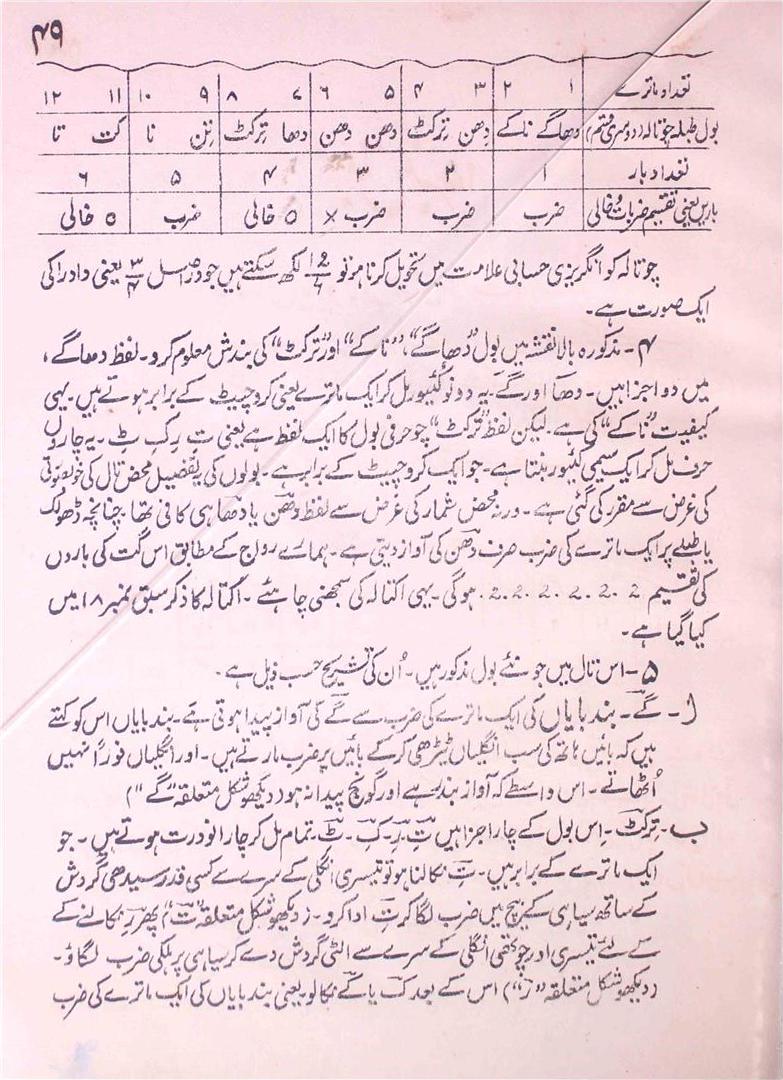 ۴۹
تعداد ماترے ۱ ۲ ۳ ۴ ۵ ۶ ۷ ۸ ۹ ۱۰ ۱۱ ۱۲
بول طبلہ چوتالہ (دوسری قسم) دھاگے ناکے دِھن تِرکٹ دھن دھن دھا تِرکٹ تِنن نا کت تا
تعداد بار ۱ ۲ ۳ ۴ ۵ ۶
باریں یعنی تقسیم ضربات و خالی ضرب ضرب ضرب × ۵ خالی ضرب ۵ خالی
چوتالہ کو انگریزی حسابی علامت میں تحویل کرنا ہو تو لکھ سکتے ہیں جو دراصل ۳/۴ یعنی دادرا کی
ایک صورت ہے۔
۴ - مذکورہ بالا نقشہ میں بول "دھاگے"، "ناکے" اور "ترکٹ" کی بندش معلوم کرو۔ لفظ دھاگے،
میں دو اجزا ہیں۔ دھا اور گے۔ یہ دونو کئیور مل کر ایک ماترے یعنی کروچیٹ کے برابر ہوتے ہیں۔ یہی
کیفیت "ناکے" کی ہے۔ لیکن لفظ "ترکٹ" چو حرفی بول کا ایک لفظ ہے یعنی تِ رِ کِ ٹِ ۔ یہ چاروں
حرف مل کر ایک سیمی کئیور بنتا ہے۔ جو ایک کروچیٹ کے برابر ہے۔ بولوں کی یہ تفصیل محض تال کی خوبصورتی
کی غرض سے مقرر کی گئی ہے۔ ورنہ محض شمار کی غرض سے لفظ دھن یا دھا ہی کافی تھا۔ چنانچہ ڈھولک
یا طبلے پر ایک ماترے کی ضرب صرف دھن کی آواز دیتی ہے۔ ہمارے رواج کے مطابق اس گت کی باروں
کی تقسیم 2 . 2 . 2 . 2 . 2 . 2 . ہوگی۔ یہی اکتالہ کی سمجھنی چاہئے۔ اکتالہ کا ذکر سبق نمبر ۱۸ میں
کیا گیا ہے۔
۵ - اس تال میں جو نئے بول مذکور ہیں۔ اُن کی تشریح حسب ذیل ہے۔
ا - گے۔ بند بایاں کی ایک ماترے کی ضرب سے گے کی آواز پیدا ہوتی ہے۔ بند بایاں اس کو کہتے
ہیں کہ بائیں ہاتھ کی سب انگلیاں ٹیڑھی کرکے بائیں پر ضرب مارتے ہیں۔ اور انگلیاں فوراً نہیں
اُٹھاتے۔ اس واسطے کہ آواز بند رہے اور گونج پیدا نہ ہو (دیکھو شکل متعلقہ "گے")
ب - تِرکٹ۔ اِس بول کے چار اجزا ہیں تِ۔ رِ۔ کِ۔ ٹِ۔ تمام مل کر چار انودرت ہوتے ہیں۔ جو
ایک ماترے کے برابر ہیں۔ تِ نکالنا ہو تو تیسری انگلی کے سرے سے کسی قدر سیدھی گردش
کے ساتھ سیاہی کے بیچ میں ضرب لگا کر تِ ادا کرو۔ (دیکھو شکل متعلقہ "ت") پھر رِ نکالنے کے
کے لئے تیسری اور چوتھی انگلی کے سرے سے الٹی گردش دے کر سیاہی پر ہلکی ضرب لگاؤ۔
(دیکھو شکل متعلقہ "رِ") اس کے بعد ک یا گے نکالو۔ یعنی بند بایاں کی ایک ماترے کی ضرب